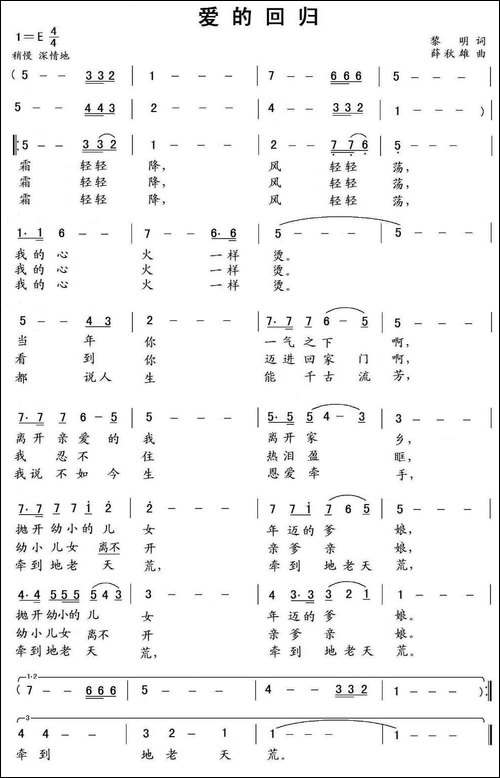 爱的回归
1=E 4/4
黎明 词
稍慢 深情地
薛秋雄 曲
( 5 - - 332 | 1 - - - | 7 - - 666 | 5 - - - |
5 - - 443 | 2 - - - | 4 - - 332 | 1 - - - ) |
‖: 5 - - 332 | 1 - - - | 2 - - 776 | 5 - - - |
霜 轻轻 降, 风 轻轻 荡,
霜 轻轻 降, 风 轻轻 荡,
霜 轻轻 降, 风 轻轻 荡,
1· 1 6 - - | 7 - - 6·6 | 5 - - - | 5 - - - |
我的心 火 一样 烫。
我的心 火 一样 烫。
我的心 火 一样 烫。
5 - - 43 | 2 - - - | 7· 7 7 6 - 5 | 5 - - - |
当 年 你 一气之下 啊,
看 到 你 迈进回家 门啊,
都 说人 生 能 千古 流 芳,
7· 7 7 6 - 5 | 5 - - - | 5· 5 5 4 - 3 | 3 - - - |
离开亲爱的 我 离开家 乡,
我 忍不 住 热泪盈 眶,
我说不如今 生 恩爱牵 手,
7·7 77 7 i 2 | 2 - - - | 7 7 i 7 6 5 | 5 - - - |
抛开幼小的儿 女 年迈的爹 娘,
幼小儿女离不 开 亲爹亲 娘,
牵到地老天 荒, 牵到地老天 荒,
4·4 555 543 | 2 - - - | 4·4 3 3 2 1 | 1 - - - |
抛开幼小的儿 女 年迈的爹 娘。
幼小儿女离不 开 亲爹亲 娘。
牵到地老天 荒, 牵到地老天 荒。
1·2
( 7 - - 666 | 5 - - - | 4 - - 332 | 1 - - - ) :‖
3
4 4 - - | 3· 2 - 2 | 1 - - - | 1 - - - ‖
牵到 地老 天 荒。